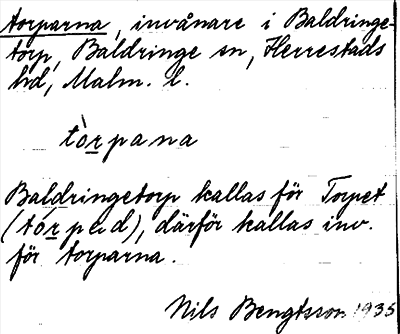 torparna, invånare i Baldringe-
torp, Baldringe sn, Herrestads
hd, Malm. l.
tòrpana
Baldringetorp kallas för Torpet
(tòrpəd), därför kallas inv.
för torparna.
Nils Bengtsson 1935